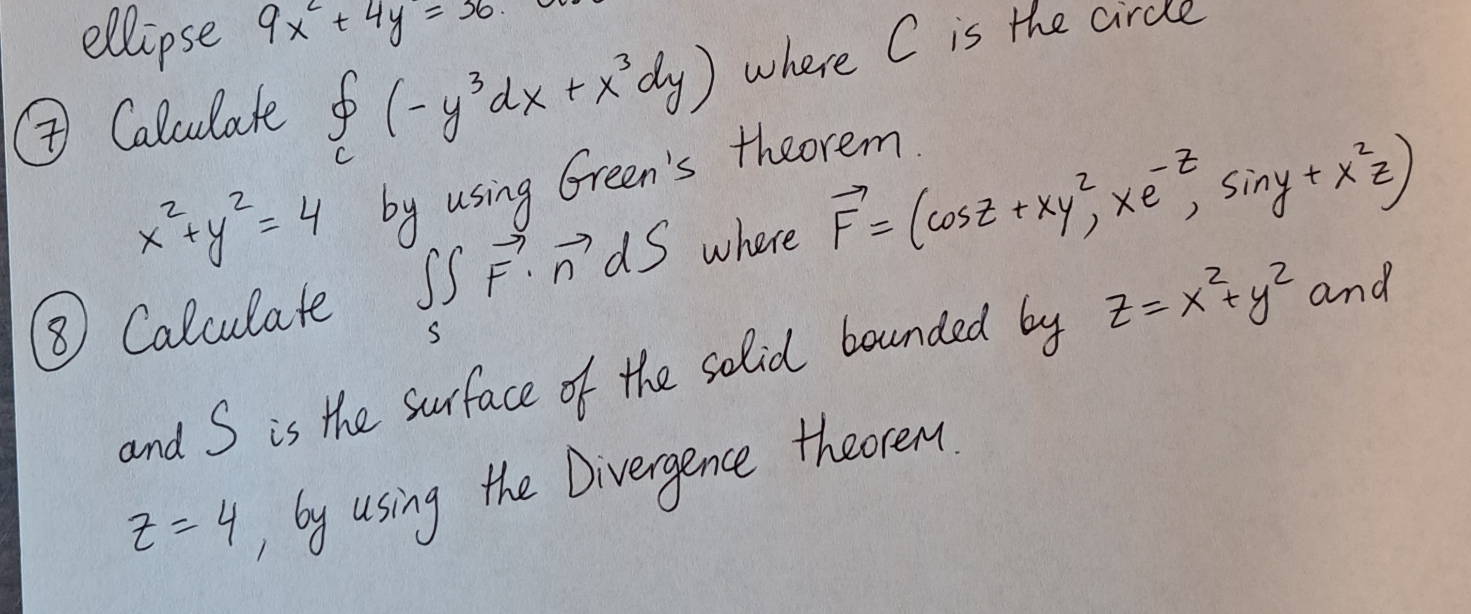 ellipse 9x² + 4y² = 36.
⑦ Calculate ∮_C (-y³dx + x³dy) where C is the circle
x² + y² = 4 by using Green's theorem.
⑧ Calculate ∬_S F⃗ · n⃗ dS where F⃗ = (cosz + xy², xe^{-z}, siny + x²z)
and S is the surface of the solid bounded by z = x² + y² and
z = 4, by using the Divergence theorem.